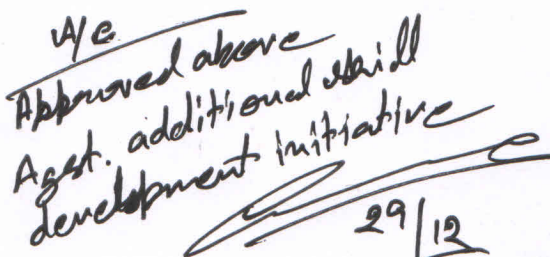 A/c
Approved above
Agst. additional skill
development initiative
29/12